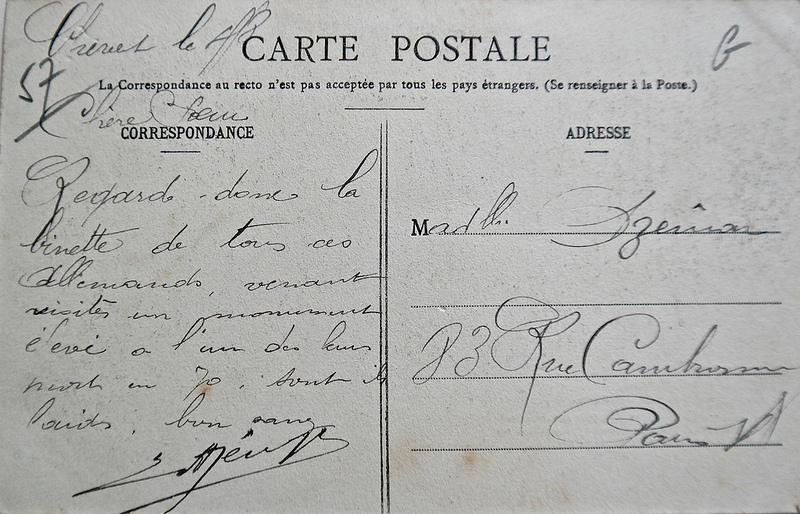 le
CARTE POSTALE
G
57
La Correspondance au recto n'est pas acceptée par tous les pays étrangers. (Se renseigner à la Poste.)
Chère Sœur
CORRESPONDANCE
ADRESSE
Regardé donc la
binette de tous ces
Allemands, venant
visités un monument
élevé a l'un des leurs
mort en 70. sont ils
laids, bon sang
Madlle
83 Rue Cambronne
Paris